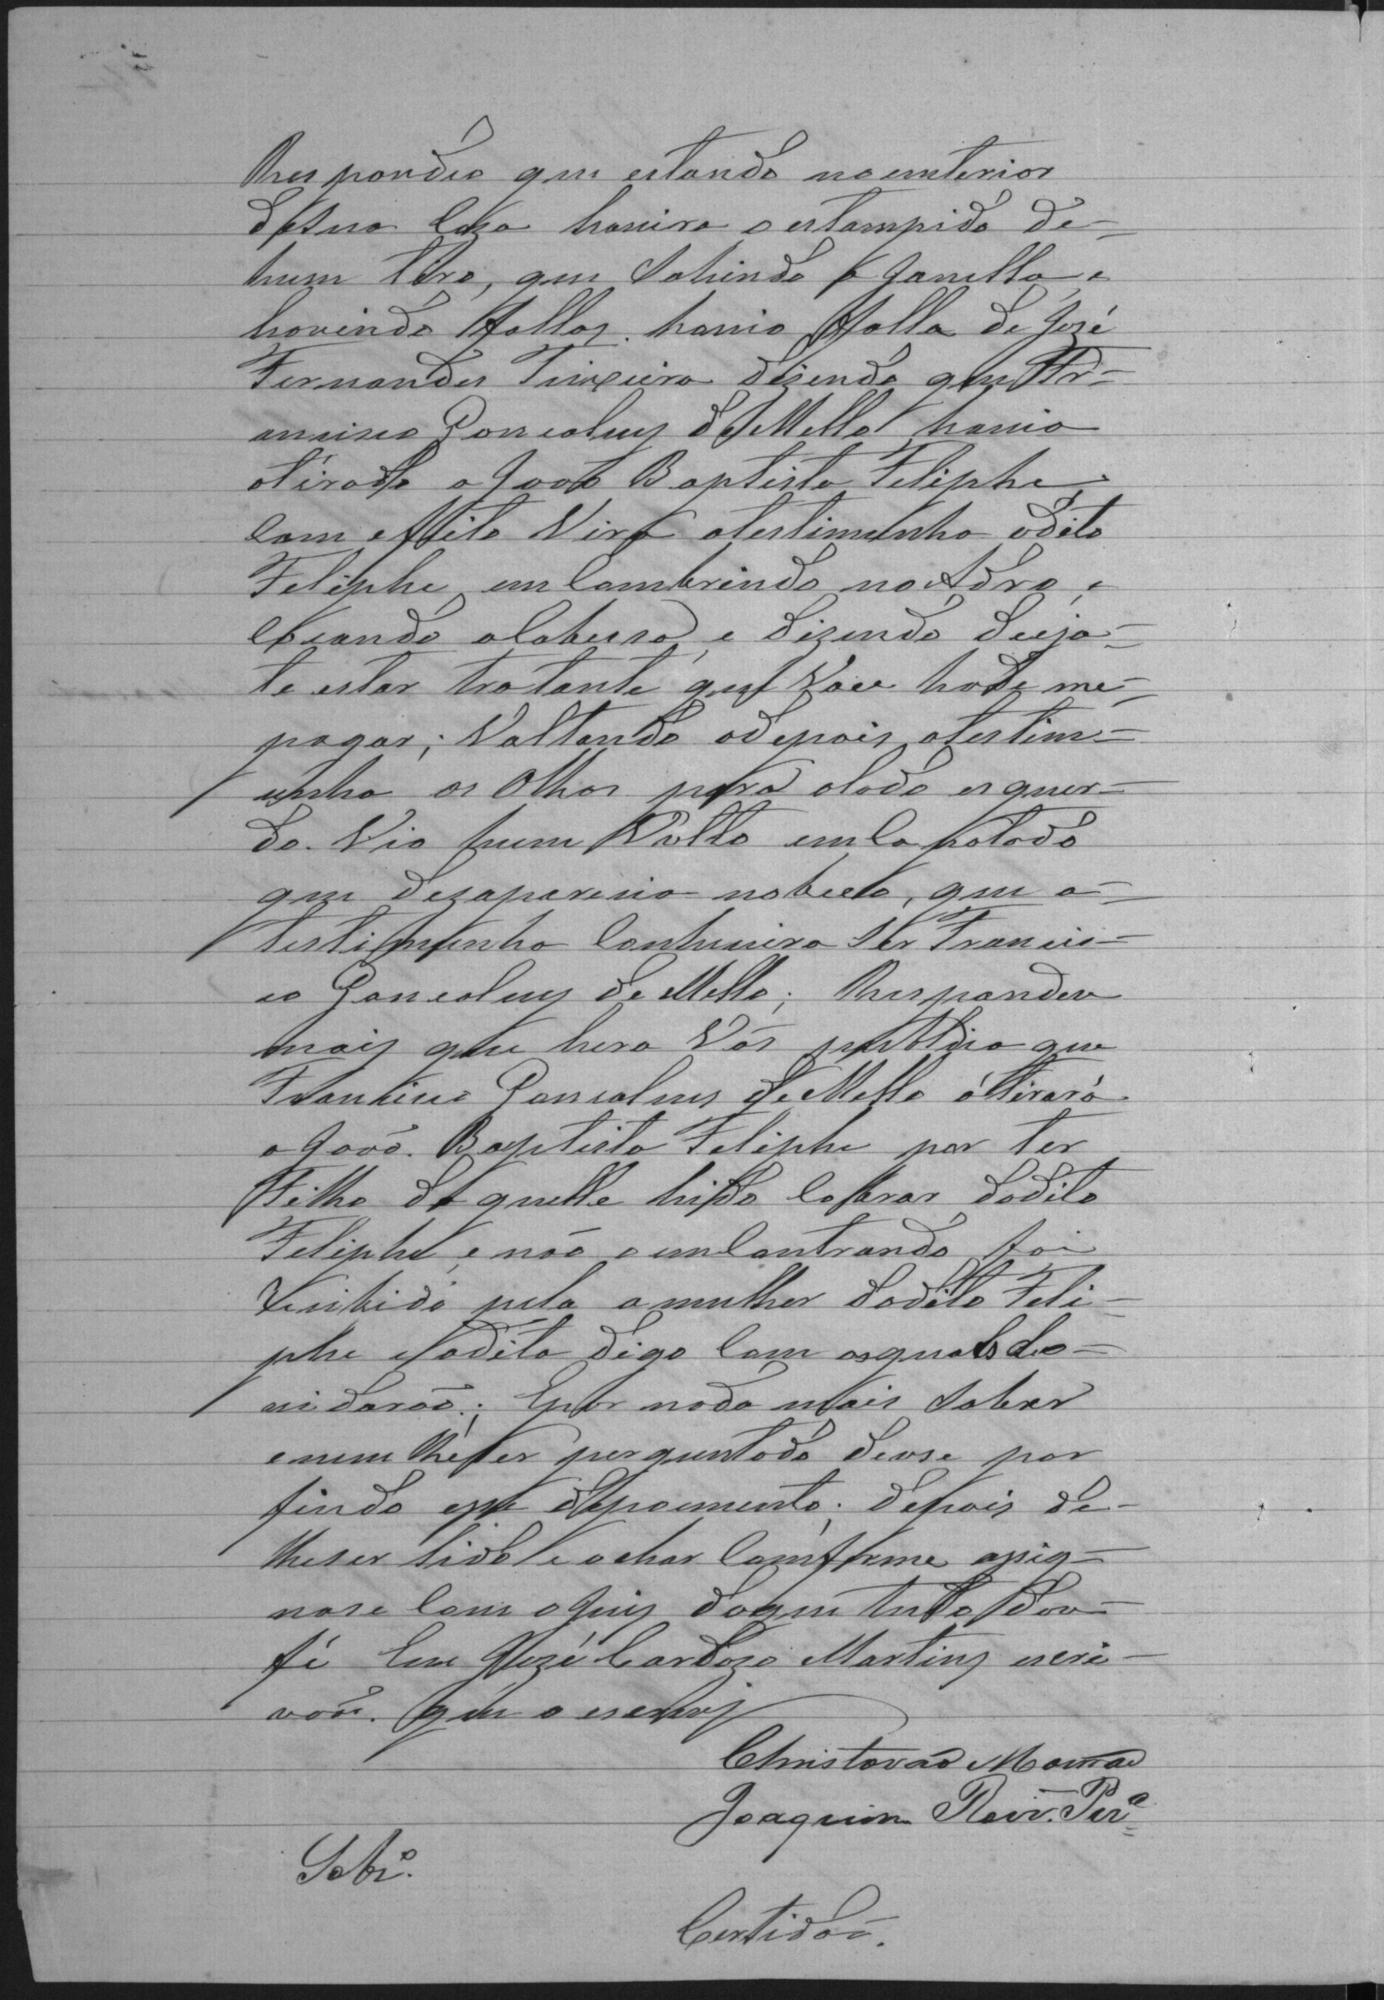 Respondeo que estando no emterior
de sua Caza houvira o estampido de=
hum tiro, que sahindo a Janella, e
houvindo fallas. houvio falla de José
Fernandes Teixeira dizendo que Fr=
ancisco Goncalves de Mello havia
atirado a Joaõ Baptista Feliphe,
Com effeito Vira atestimunha odito
Feliphe emCambrindo no Adro, e
Cocando aCabessa, e dizendo deixa=
te estar tratante que Voce hade me=
pagar; Voltando adepois atestim=
unha os Olhos para olado esquer=
do. Vio hum Vulto emCapotado
que dezapareceo nobeco, que a=
testimunha Conhecera Ser Francis=
co Goncalves de Mello; Respondeu
mais que hera Vós publica que
Francisco Goncalves de Mello átirará
a Joaõ. Baptista Feliphe por ter
Filho daquelle hido Cobrar dodito
Feliphe, e naõ o emContrando foi
recibido pela a mulher dodito Feli=
phe e fodito digo Com as quaes
vidaraõ; E por nada mais Saber
enem lheser perguntado deuse por
findo este depoemento; depois de=
lheser lido e achar Comforme assig=
nase Com o Juis doque tudo dou=
fé Eu José Cardozo Martins escri=
vaõ. que o escrevj
Christovaõ Moura
Joaquim Roiz. Per.ª
Certidaõ.